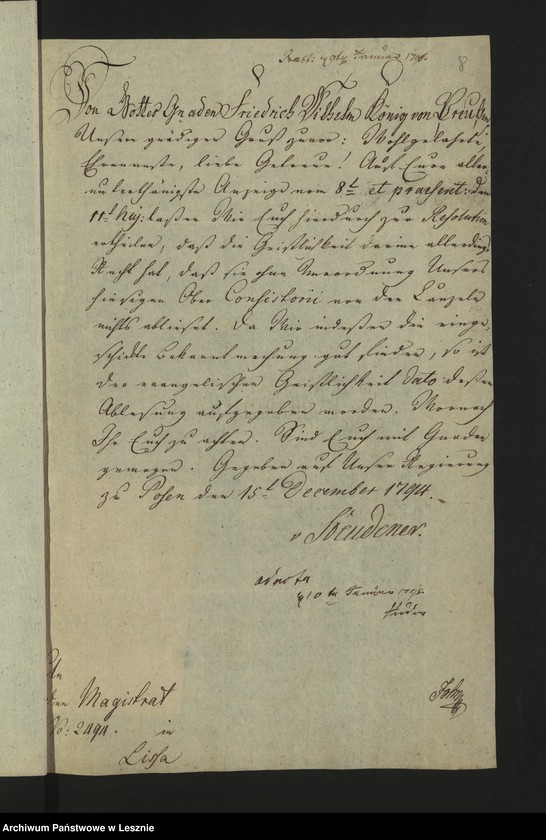 Praes: d 9ten Januar 1795.
8
Von Gottes Gnaden Friedrich Wilhelm König von Preußen
Unsern gnädigen Gruß zuvor: Wohlgelahrte,
Ehrenveste, liebe Getreue! Auf Eure aller-
unterthänigste Anzeige vom 8t. et praesent: den
11t. huj: laßen Wir Euch hierdurch zur Resolution
ertheilen, daß die Geistlichkeit darinn allerdings
Recht hat, daß sie ohne Verordnung Unsers
hiesigen Ober Consistorii von den Kanzeln
nichts abließet. Da Wir indeßen die einge-
schickte Bekanntmachung gut finden, so ist
der evangelischen Geistlichkeit dato deßen
Ablesung aufgegeben worden. Wornach
Ihr Euch zu achten. Sind Euch mit Gnaden
gewogen. Gegeben auf Unser Regierung
zu Posen den 15t. December 1794.
v Steudener.
ad acta
d 10ten Januar 1795.
An
den Magistrat
No: 2494. in
Lissa
Archiwum Państwowe w Lesznie